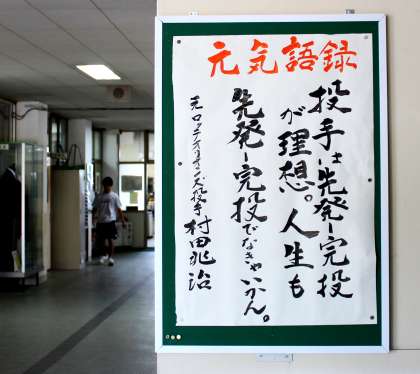 元気語録
投手は先発ー完投
が理想。人生も
先発ー完投でなきゃいかん。
元ロッテオリオンズ投手 村田兆治